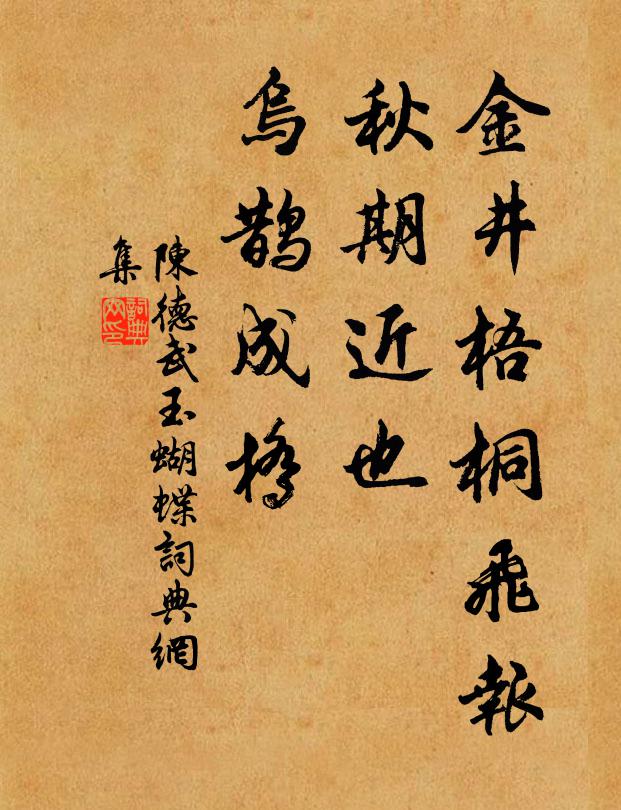 金井梧桐飛報
秋期近也
烏鵲成橋
陳德武玉蝴蝶詞典網
集
詞典網印